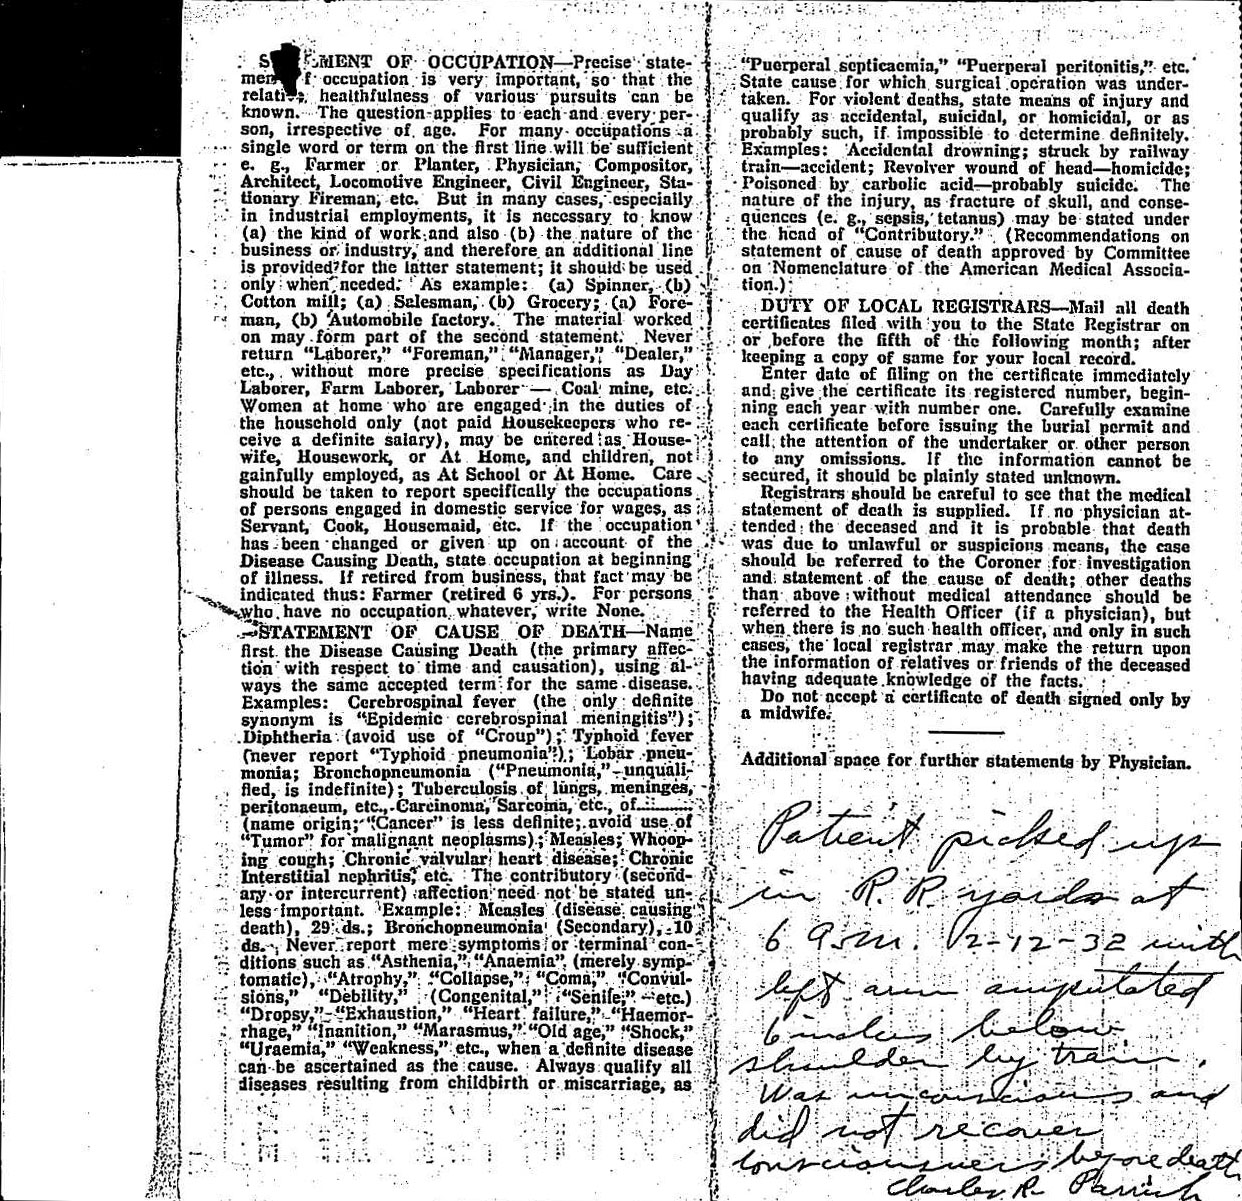 STATEMENT OF OCCUPATION—Precise state-
ment of occupation is very important, so that the
relative healthfulness of various pursuits can be
known. The question applies to each and every per-
son, irrespective of age. For many occupations a
single word or term on the first line will be sufficient
e. g., Farmer or Planter, Physician, Compositor,
Architect, Locomotive Engineer, Civil Engineer, Sta-
tionary Fireman, etc. But in many cases, especially
in industrial employments, it is necessary to know
(a) the kind of work and also (b) the nature of the
business or industry, and therefore an additional line
is provided for the latter statement; it should be used
only when needed. As example: (a) Spinner, (b)
Cotton mill; (a) Salesman, (b) Grocery; (a) Fore-
man, (b) Automobile factory. The material worked
on may form part of the second statement. Never
return "Laborer," "Foreman," "Manager," "Dealer,"
etc., without more precise specifications as Day
Laborer, Farm Laborer, Laborer — Coal mine, etc.
Women at home who are engaged in the duties of
the household only (not paid Housekeepers who re-
ceive a definite salary), may be entered as House-
wife, Housework, or At Home, and children, not
gainfully employed, as At School or At Home. Care
should be taken to report specifically the occupations
of persons engaged in domestic service for wages, as
Servant, Cook, Housemaid, etc. If the occupation
has been changed or given up on account of the
Disease Causing Death, state occupation at beginning
of illness. If retired from business, that fact may be
indicated thus: Farmer (retired 6 yrs.). For persons
who have no occupation whatever, write None.
STATEMENT OF CAUSE OF DEATH—Name
first the Disease Causing Death (the primary affec-
tion with respect to time and causation), using al-
ways the same accepted term for the same disease.
Examples: Cerebrospinal fever (the only definite
synonym is "Epidemic cerebrospinal meningitis");
Diphtheria (avoid use of "Croup"); Typhoid fever
(never report "Typhoid pneumonia"); Lobar pneu-
monia; Bronchopneumonia ("Pneumonia," unquali-
fied, is indefinite); Tuberculosis of lungs, meninges,
peritonaeum, etc., Carcinoma, Sarcoma, etc., of........
(name origin; "Cancer" is less definite; avoid use of
"Tumor" for malignant neoplasms); Measles; Whoop-
ing cough; Chronic valvular heart disease; Chronic
Interstitial nephritis, etc. The contributory (second-
ary or intercurrent) affection need not be stated un-
less important. Example: Measles (disease causing
death), 29 ds.; Bronchopneumonia (Secondary), 10
ds. Never report mere symptoms or terminal con-
ditions such as "Asthenia," "Anaemia" (merely symp-
tomatic), "Atrophy," "Collapse," "Coma," "Convul-
sions," "Debility," (Congenital," "Senile," etc.)
"Dropsy," "Exhaustion," "Heart failure," "Haemor-
rhage," "Inanition," "Marasmus," "Old age," "Shock,"
"Uraemia," "Weakness," etc., when a definite disease
can be ascertained as the cause. Always qualify all
diseases resulting from childbirth or miscarriage, as
"Puerperal septicaemia," "Puerperal peritonitis," etc.
State cause for which surgical operation was under-
taken. For violent deaths, state means of injury and
qualify as accidental, suicidal, or homicidal, or as
probably such, if impossible to determine definitely.
Examples: Accidental drowning; struck by railway
train—accident; Revolver wound of head—homicide;
Poisoned by carbolic acid—probably suicide. The
nature of the injury, as fracture of skull, and conse-
quences (e. g., sepsis, tetanus) may be stated under
the head of "Contributory." (Recommendations on
statement of cause of death approved by Committee
on Nomenclature of the American Medical Associa-
tion.)
DUTY OF LOCAL REGISTRARS—Mail all death
certificates filed with you to the State Registrar on
or before the fifth of the following month; after
keeping a copy of same for your local record.
Enter date of filing on the certificate immediately
and give the certificate its registered number, begin-
ning each year with number one. Carefully examine
each certificate before issuing the burial permit and
call the attention of the undertaker or other person
to any omissions. If the information cannot be
secured, it should be plainly stated unknown.
Registrars should be careful to see that the medical
statement of death is supplied. If no physician at-
tended the deceased and it is probable that death
was due to unlawful or suspicious means, the case
should be referred to the Coroner for investigation
and statement of the cause of death; other deaths
than above without medical attendance should be
referred to the Health Officer (if a physician), but
when there is no such health officer, and only in such
cases, the local registrar may make the return upon
the information of relatives or friends of the deceased
having adequate knowledge of the facts.
Do not accept a certificate of death signed only by
a midwife.
Additional space for further statements by Physician.
Patient picked up
in R. R. yards at
6 a.m. 2-12-32 with
left arm amputated
6 inches below
shoulder by train.
Was unconscious and
did not recover
consciousness before death
Charles R. Parrish